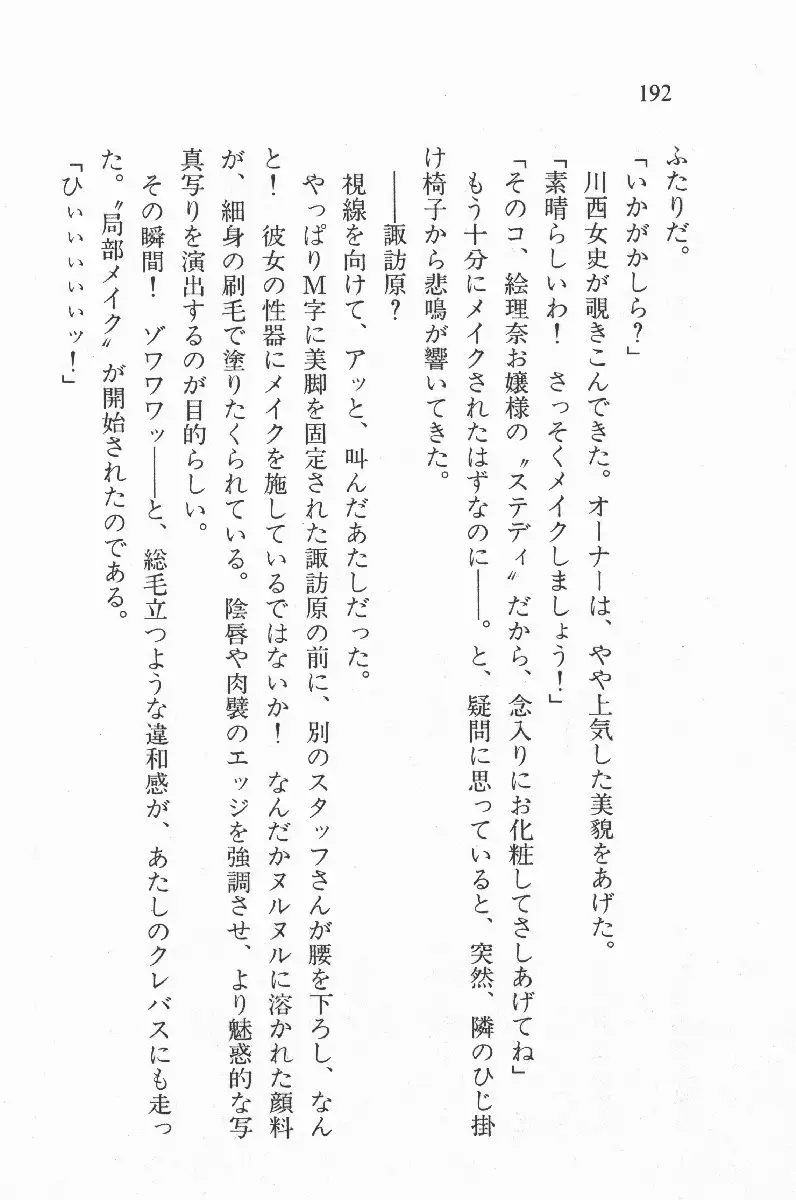 192
ふたりだ。
「いかがかしら？」
川西女史が覗きこんできた。オーナーは、やや上気した美貌をあげた。
「素晴らしいわ！　さっそくメイクしましょう！」
「そのコ、絵理奈お嬢様の〝ステディ〟だから、念入りにお化粧してさしあげてね」
もう十分にメイクされたはずなのに――。と、疑問に思っていると、突然、隣のひじ掛
け椅子から悲鳴が響いてきた。
――諏訪原？
視線を向けて、アッと、叫んだあたしだった。
やっぱりＭ字に美脚を固定された諏訪原の前に、別のスタッフさんが腰を下ろし、なん
と！　彼女の性器にメイクを施しているではないか！　なんだかヌルヌルに溶かれた顔料
が、細身の刷毛で塗りたくられている。陰唇や肉襞のエッジを強調させ、より魅惑的な写
真写りを演出するのが目的らしい。
その瞬間！　ゾワワワッ――と、総毛立つような違和感が、あたしのクレバスにも走っ
た。〝局部メイク〟が開始されたのである。
「ひぃぃぃぃぃッ！」